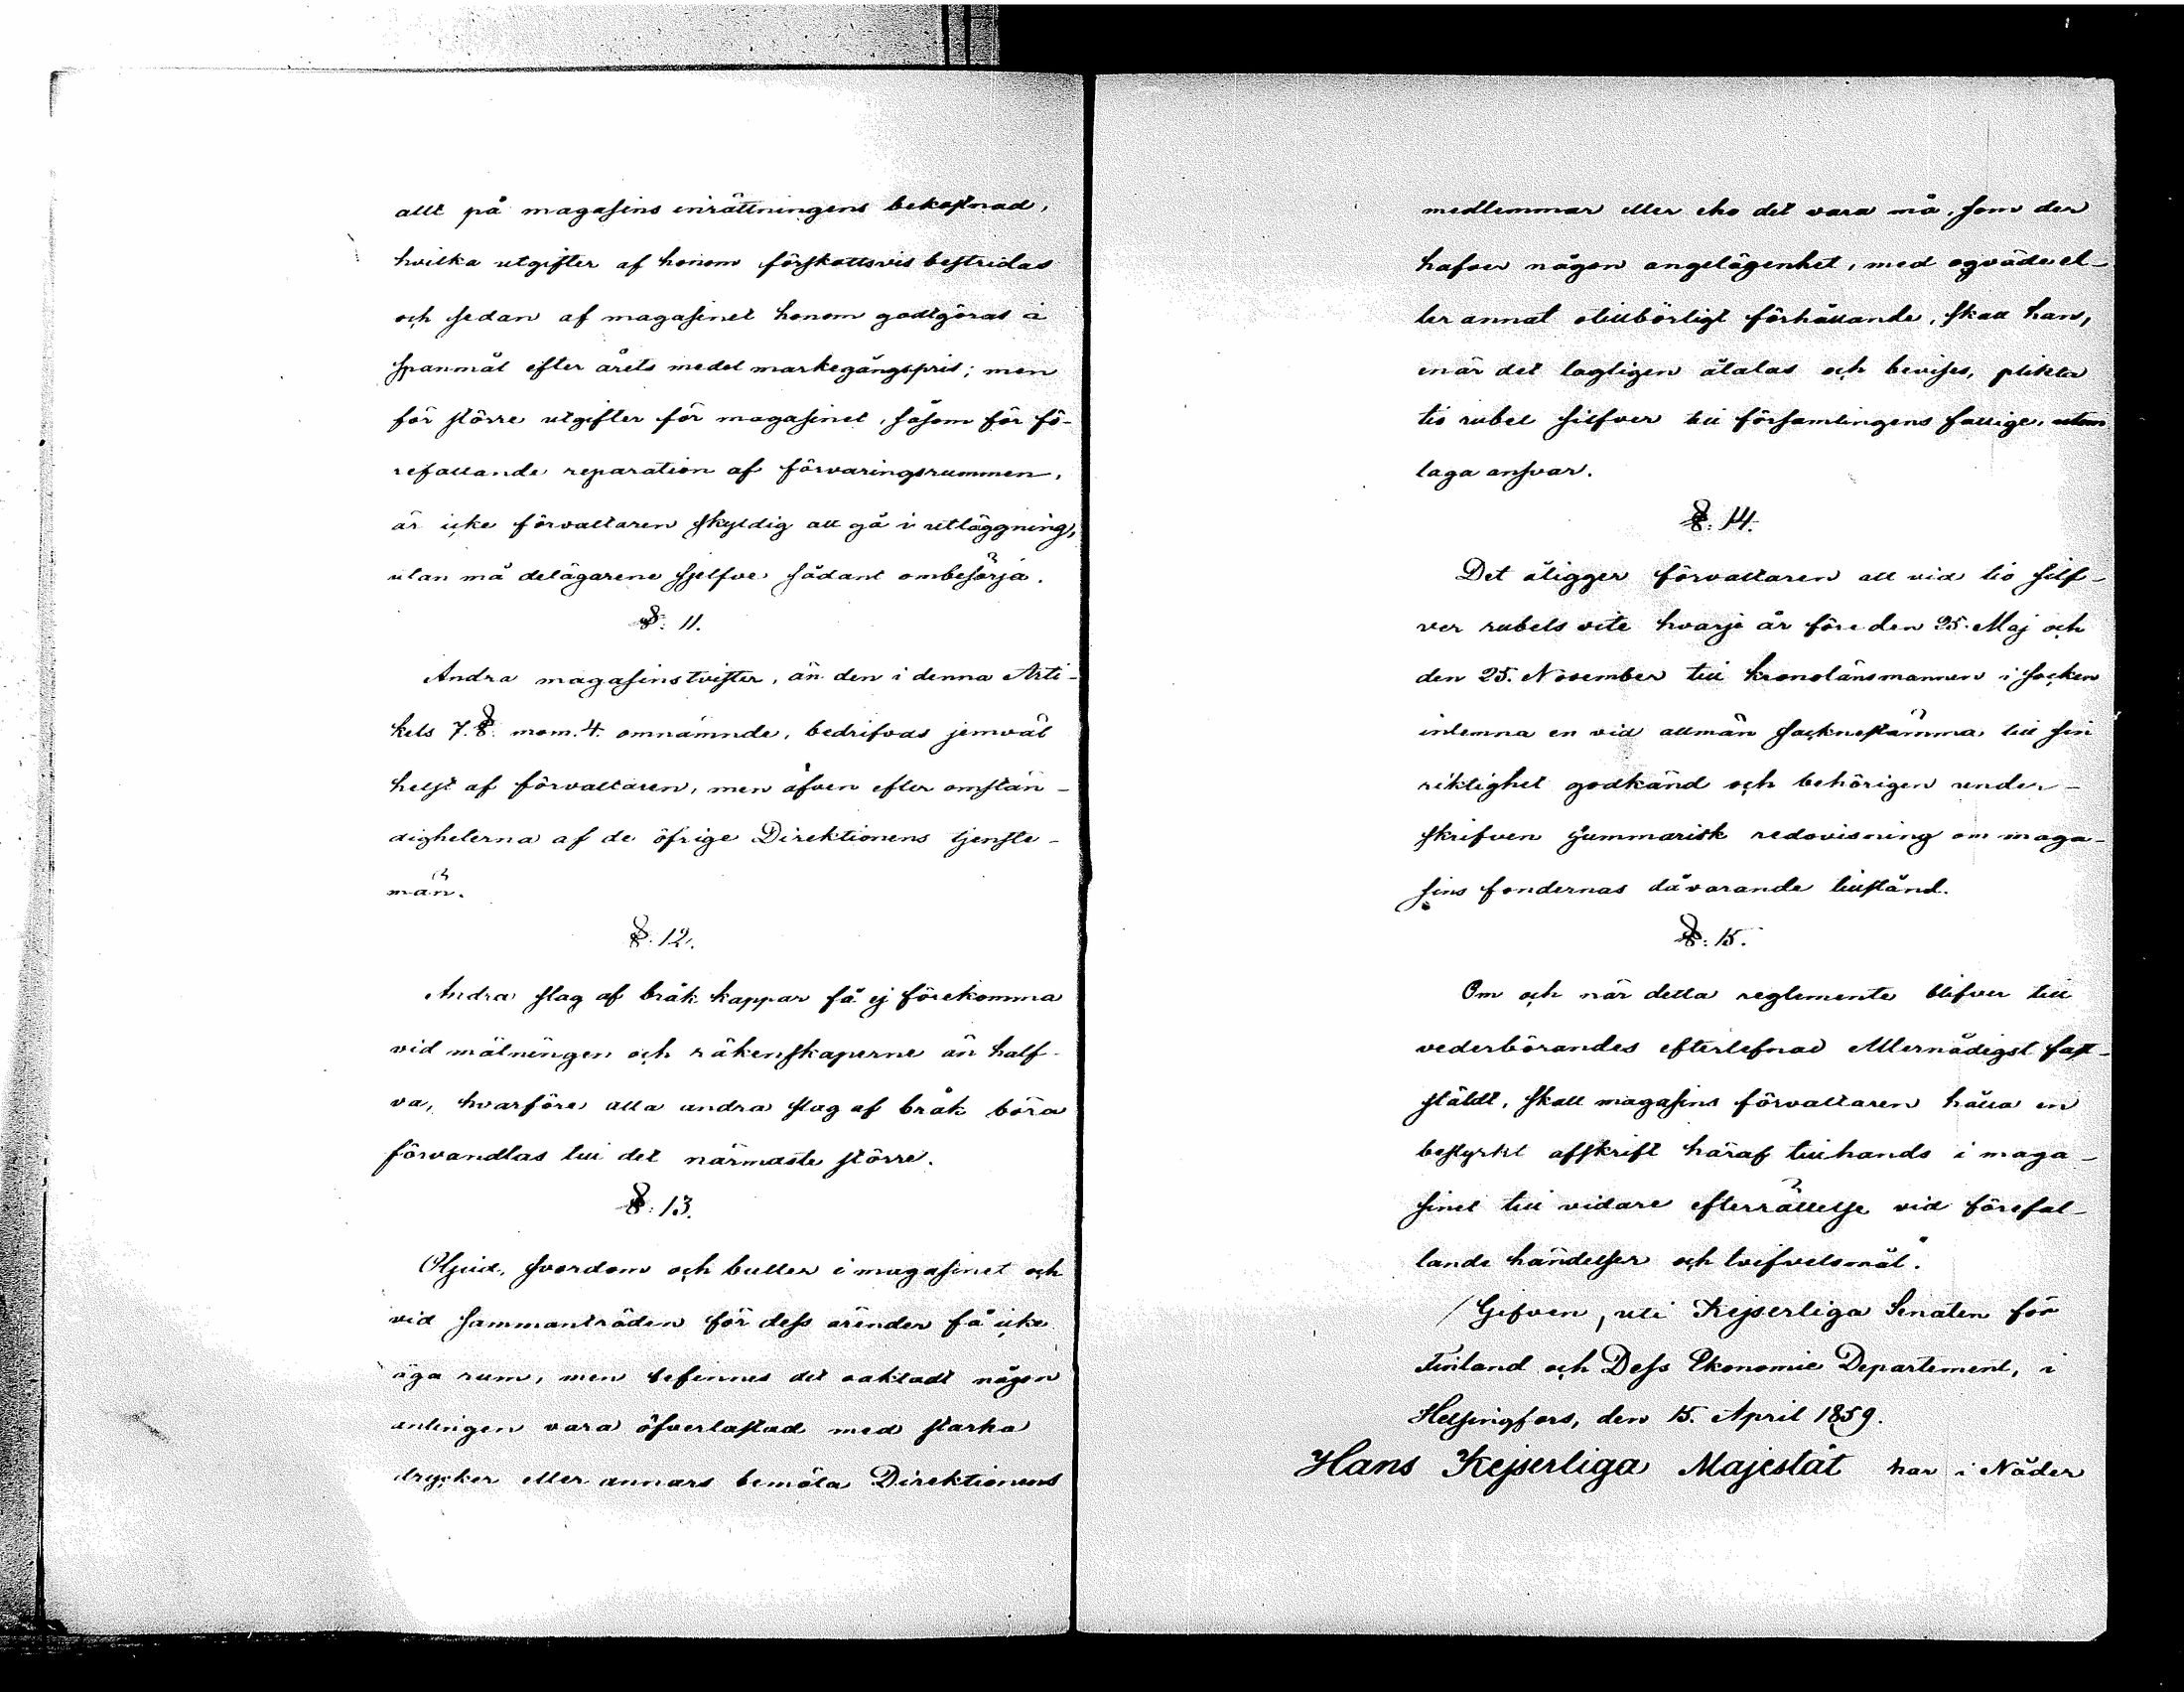 allt på magasins inrättningens bekostnad,
hvilka utgifter af honom förskottsvis bestridas
och sedan af magasinet honom godtgöras i
spanmål efter årets medel markegångspris; men
för större utgifter för magasinet, såsom för fö-
refallande reparation af förvaringsrummen,
är icke förvaltaren skyldig att gå i utläggning,
utan må delägarene sjelfve sådant ombesörja.
§. 11.
Andra magasinstvister, än den i denna Arti-
kels 7. §. mom. 4. omnämnde, bedrifvas jemväl
helst af förvaltaren, men äfven efter omstän-
digheterna af de öfrige Direktionens tjenste-
män.
§. 12.
Andra slag af bråk kappar få ej förekomma
vid mätningen och räkenskaperne än half-
va, hvarföre alla andra slag af bråk böra
förvandlas till det närmaste större.
§. 13.
Oljud, svordom och buller i magasinet och
vid sammanträden för dess ärender få icke
äga rum, men befinnes det oaktadt någon
antingen vara öfverlastad med starka
drycker eller annars bemöta Direktionens
medlemmar eller eho det vara må, som der
hafver någon angelägenhet, med oqväde el-
ler annat otillbörligt förhållande, skall han,
enär det lagligen åtalas och bevises, plikta
tio rubel silfver till församlingens fattige, utom
laga ansvar.
§. 14.
Det åligger förvaltaren att vid tio silf-
ver rubels vite hvarje år före den 25. Maj och
den 25. November till kronolänsmannen i socken
inlemna en vid allmän socknestämma till sin
riktighet godkänd och behörigen under-
skrifven summarisk redovisning om maga-
sins fondernas dåvarande tillstånd.
§. 15.
Om och när detta reglemente blifver till
vederbörandes efterlefnad Allernådigst fast-
ställdt, skall magasins förvaltaren hålla en
bestyrkt afskrift häraf tillhands i maga-
sinet till vidare efterrättelse vid förefal-
lande händelser och tvifvelsmål."
Gifven, uti Kejserliga Senaten för
Finland och Dess Ekonomie Departement, i
Helsingfors, den 15. April 1859.
Hans Kejserliga Majestät har i Nåder